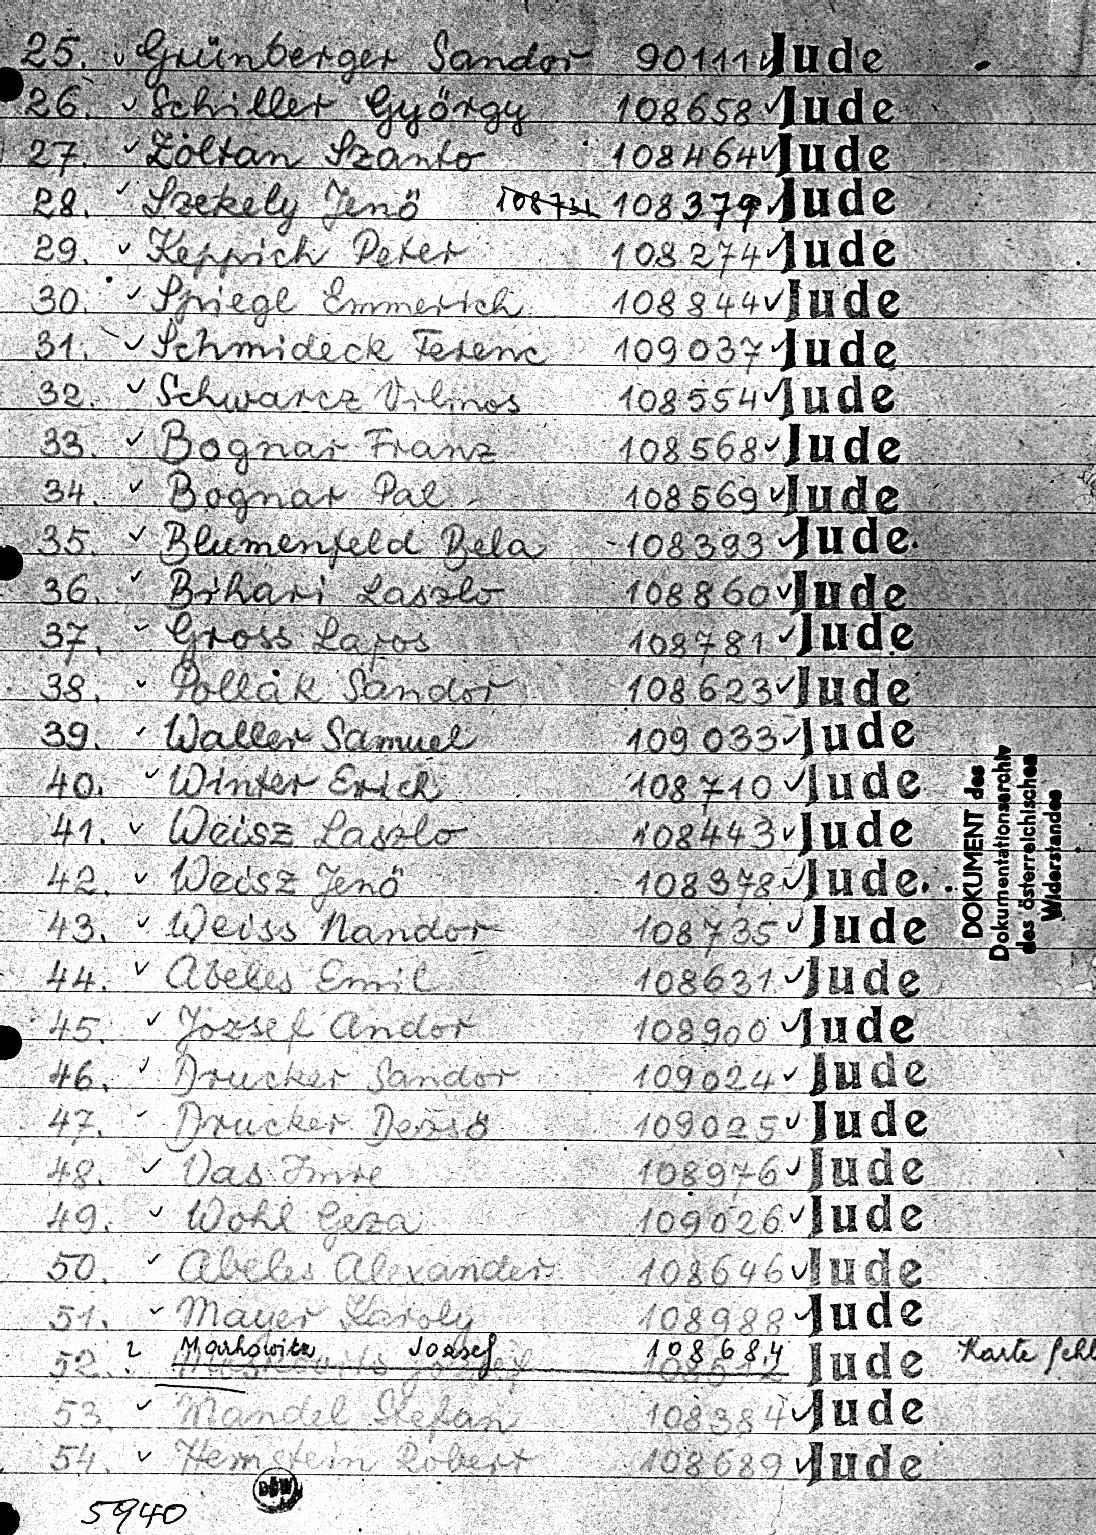 25. Grünberger Sandor 90111 Jude
26. Schiller György 108658 Jude
27. Zoltan Szanto 108464 Jude
28. Szekely Jenö 108731 108379 Jude
29. Keppich Peter 108274 Jude
30. Spiegl Emmerich 108844 Jude
31. Schmideck Ferenc 109037 Jude
32. Schwarcz Vilmos 108554 Jude
33. Bognar Franz 108568 Jude
34. Bognar Pal 108569 Jude
35. Blumenfeld Bela 108393 Jude
36. Bihari Laszlo 108860 Jude
37. Gross Lajos 108781 Jude
38. Pollák Sandor 108623 Jude
39. Waller Samuel 109033 Jude
40. Winter Erich 108710 Jude
41. Weisz Laszlo 108443 Jude
42. Weisz Jenö 108378 Jude
43. Weiss Nandor 108735 Jude
44. Abeles Emil 108631 Jude
45. Jozsef Andor 108900 Jude
46. Drucker Sandor 109024 Jude
47. Drucker Dezsö 109025 Jude
48. Vas Imre 108976 Jude
49. Wohl Geza 109026 Jude
50. Abeles Alexander 108646 Jude
51. Mayer Karoly 108988 Jude
52. Markowitz Jozsef 108684 Jude Karte fehl
53. Mandel Stefan 108384 Jude
54. Hernstein Robert 108689 Jude
5940
DÖW
DOKUMENT des
Dokumentationsarchiv
des österreichischen
Widerstandes